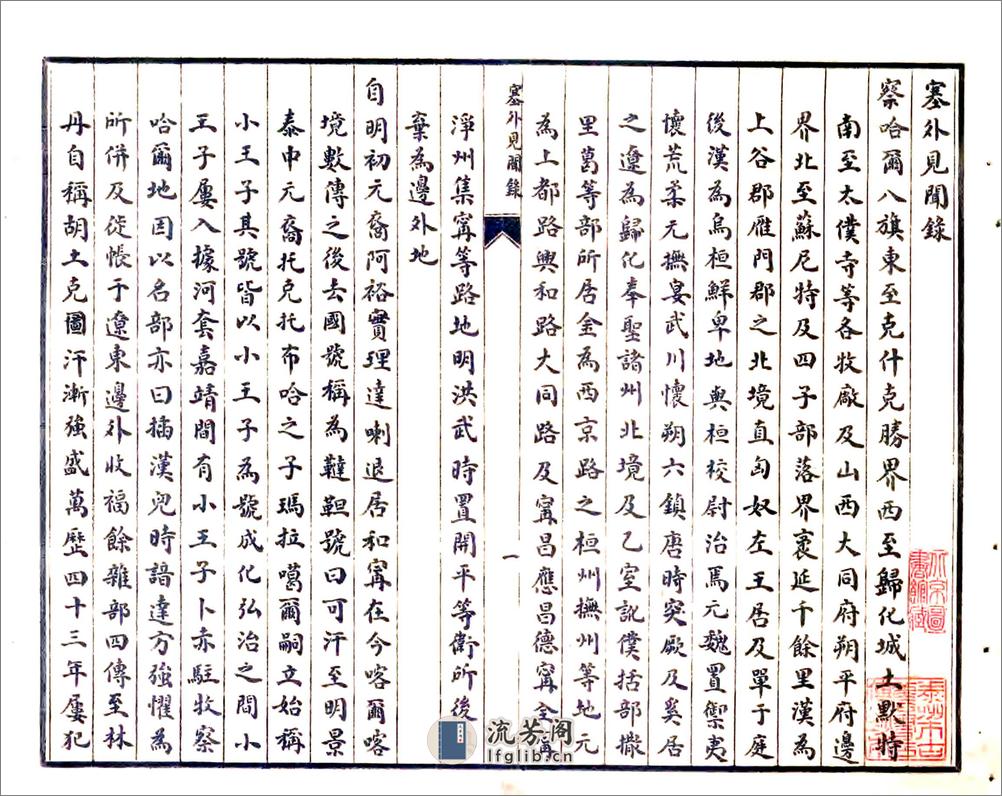 塞外見聞錄
察哈爾八旗東至克什克勝界西至歸化城土默特
南至太僕寺等各牧廠及山西大同府朔平府邊
界北至蘇尼特及四子部落界袤延千餘里漢為
上谷郡雁門郡之北境直匈奴左王居及單于庭
後漢為烏桓鮮卑地與桓校尉治焉元魏置禦夷
懷荒柔元撫宴武川懷朔六鎮唐時突厥及奚居
之遼為歸化奉聖諸州北境及乙室訛僕括部撒
里葛等部所居金為西京路之桓州撫州等地元
為上都路興和路大同路及寗昌應昌德寗全
塞外見聞錄
一
淨州集寗等路地明洪武時置開平等衛所後
棄為邊外地
自明初元裔阿裕實理達喇退居和寗在今喀爾喀
境數傳之後去國號稱為韃靼號曰可汗至明景
泰中元裔托克托布哈之子瑪拉噶爾嗣立始稱
小王子其號皆以小王子為號成化弘治之間小
王子屢入據河套嘉靖間有小王子卜赤駐牧察
哈爾地因以名部亦曰插漢兒時諳達方強懼為
所併及徙帳于遼東邊外收福餘雜部四傳至林
丹自稱胡土克圖汗漸強盛萬歷四十三年屢犯
流芳阁
lfglib.cn